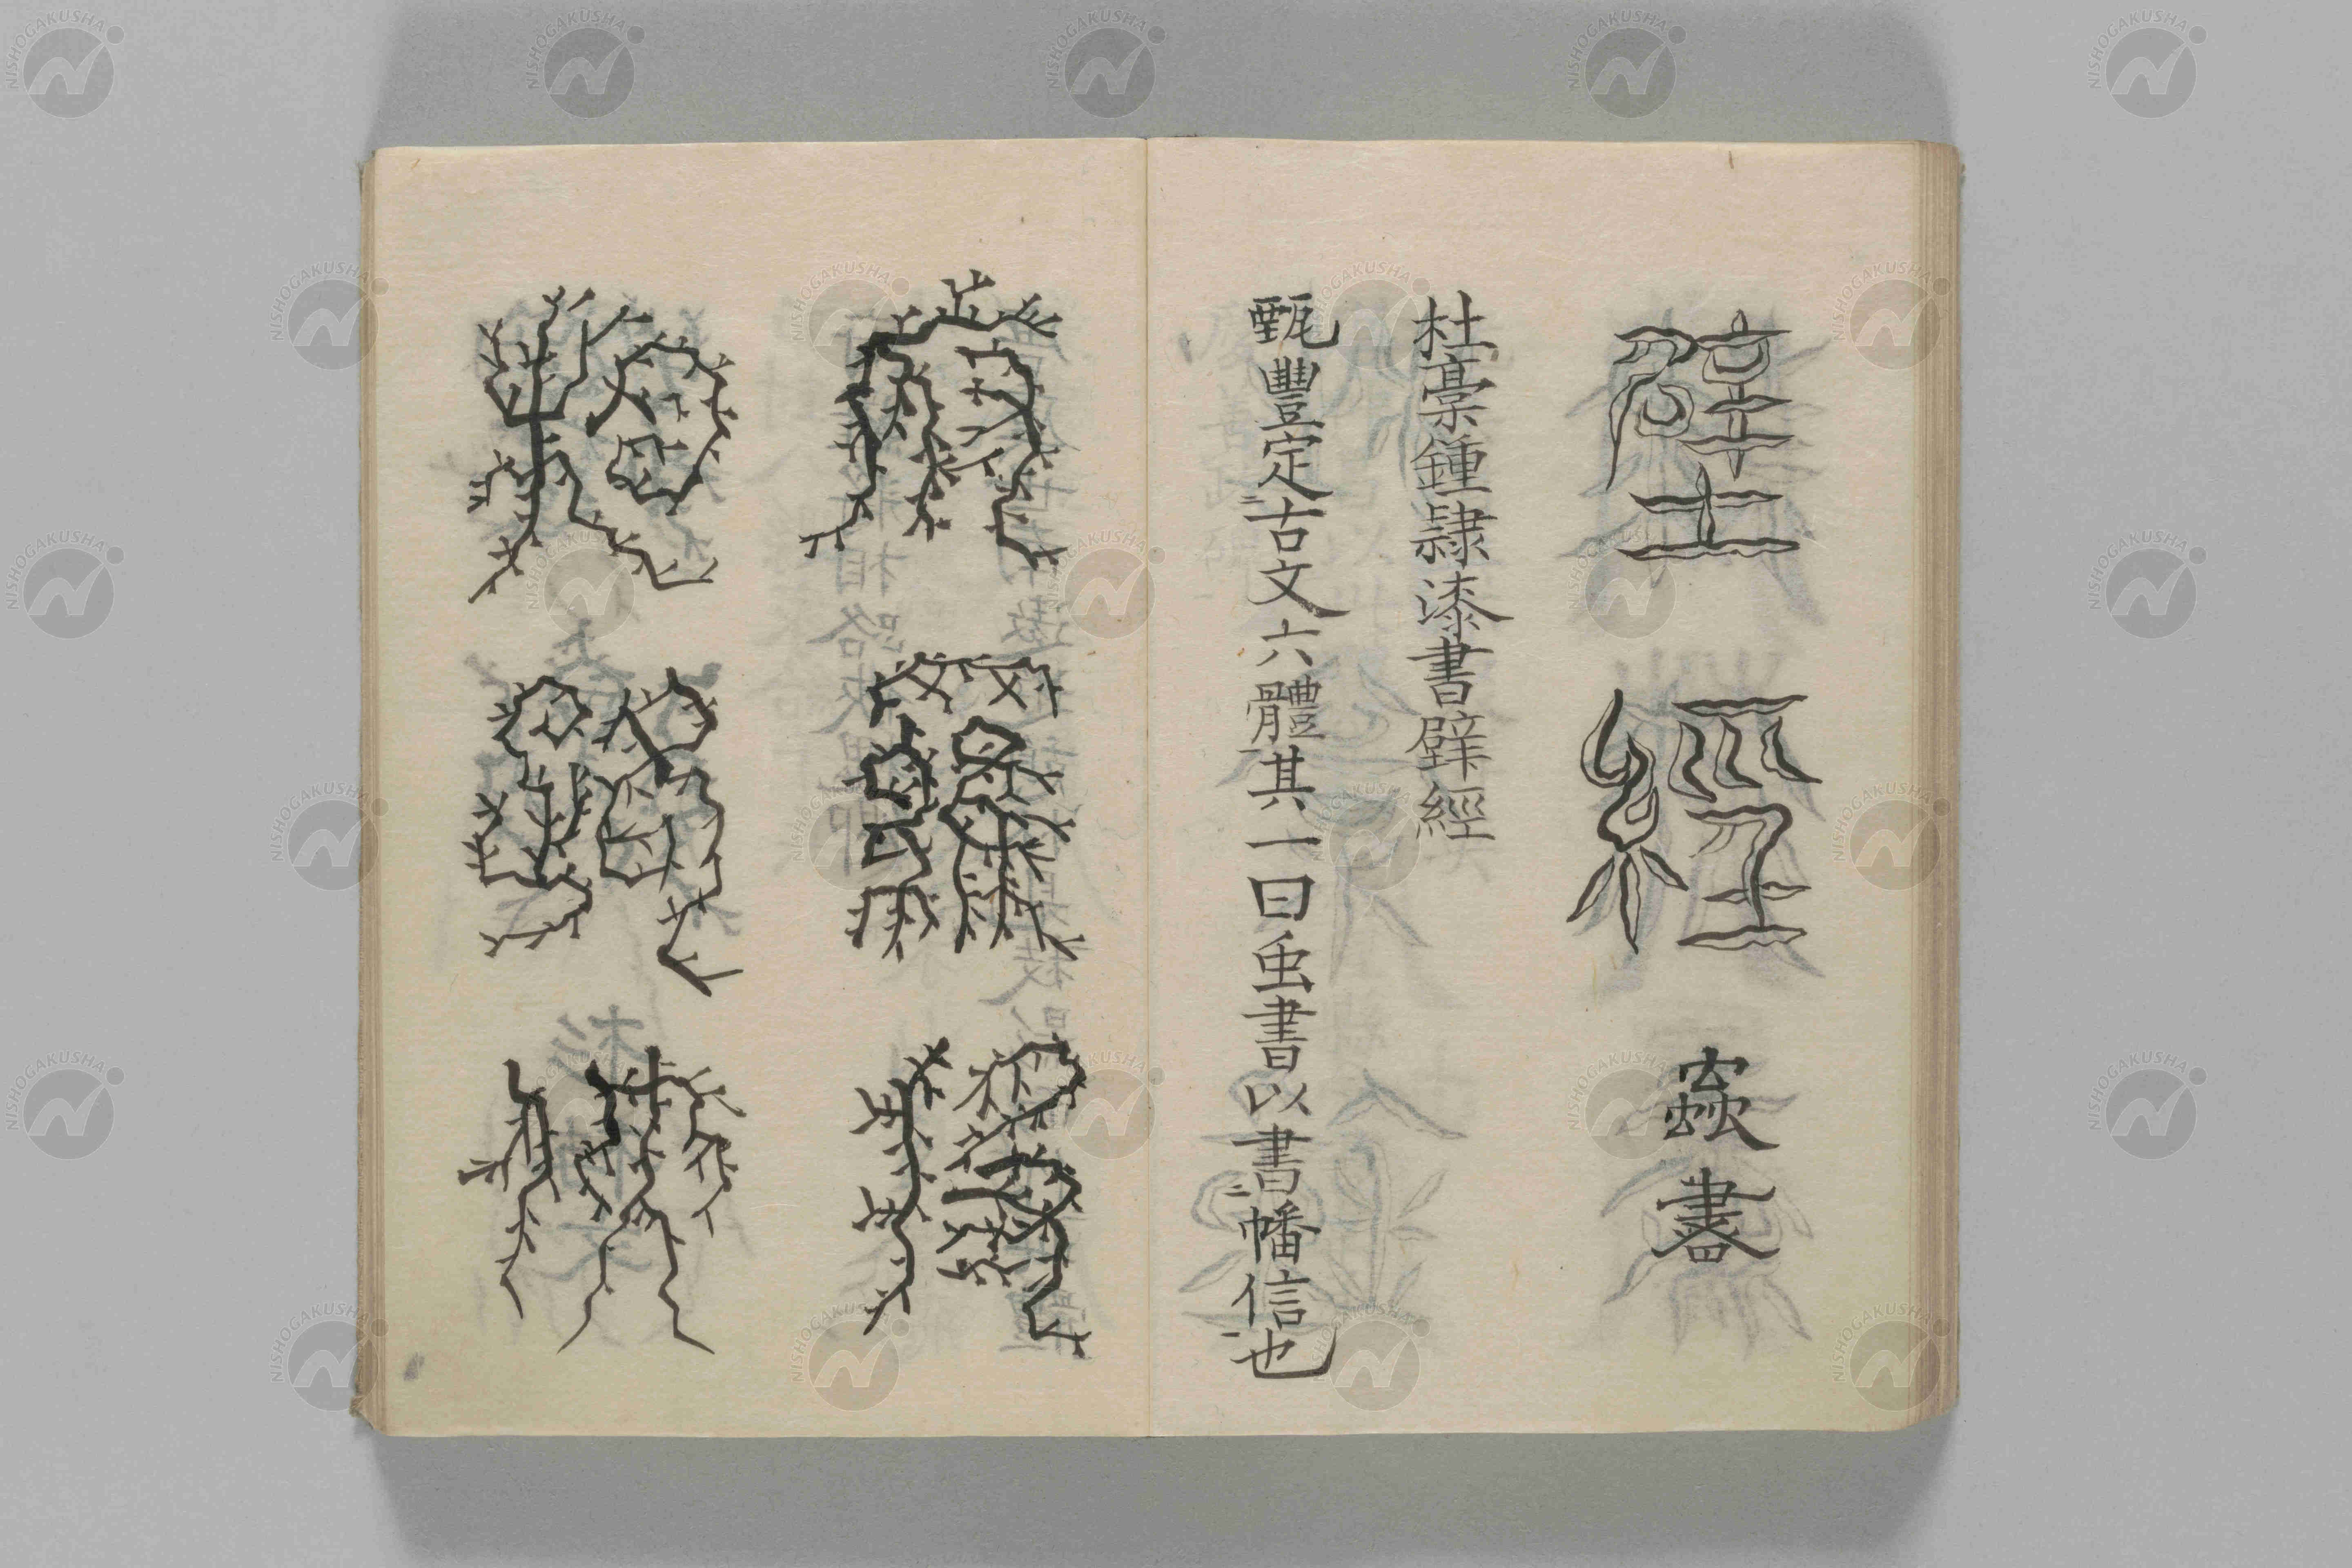 壁經
蟲書
杜稾鍾隷漆書壁經
甄豐定古文六體其一曰虫書以書幡信也
府羅將
相路俠
NISHOGAKUSHA